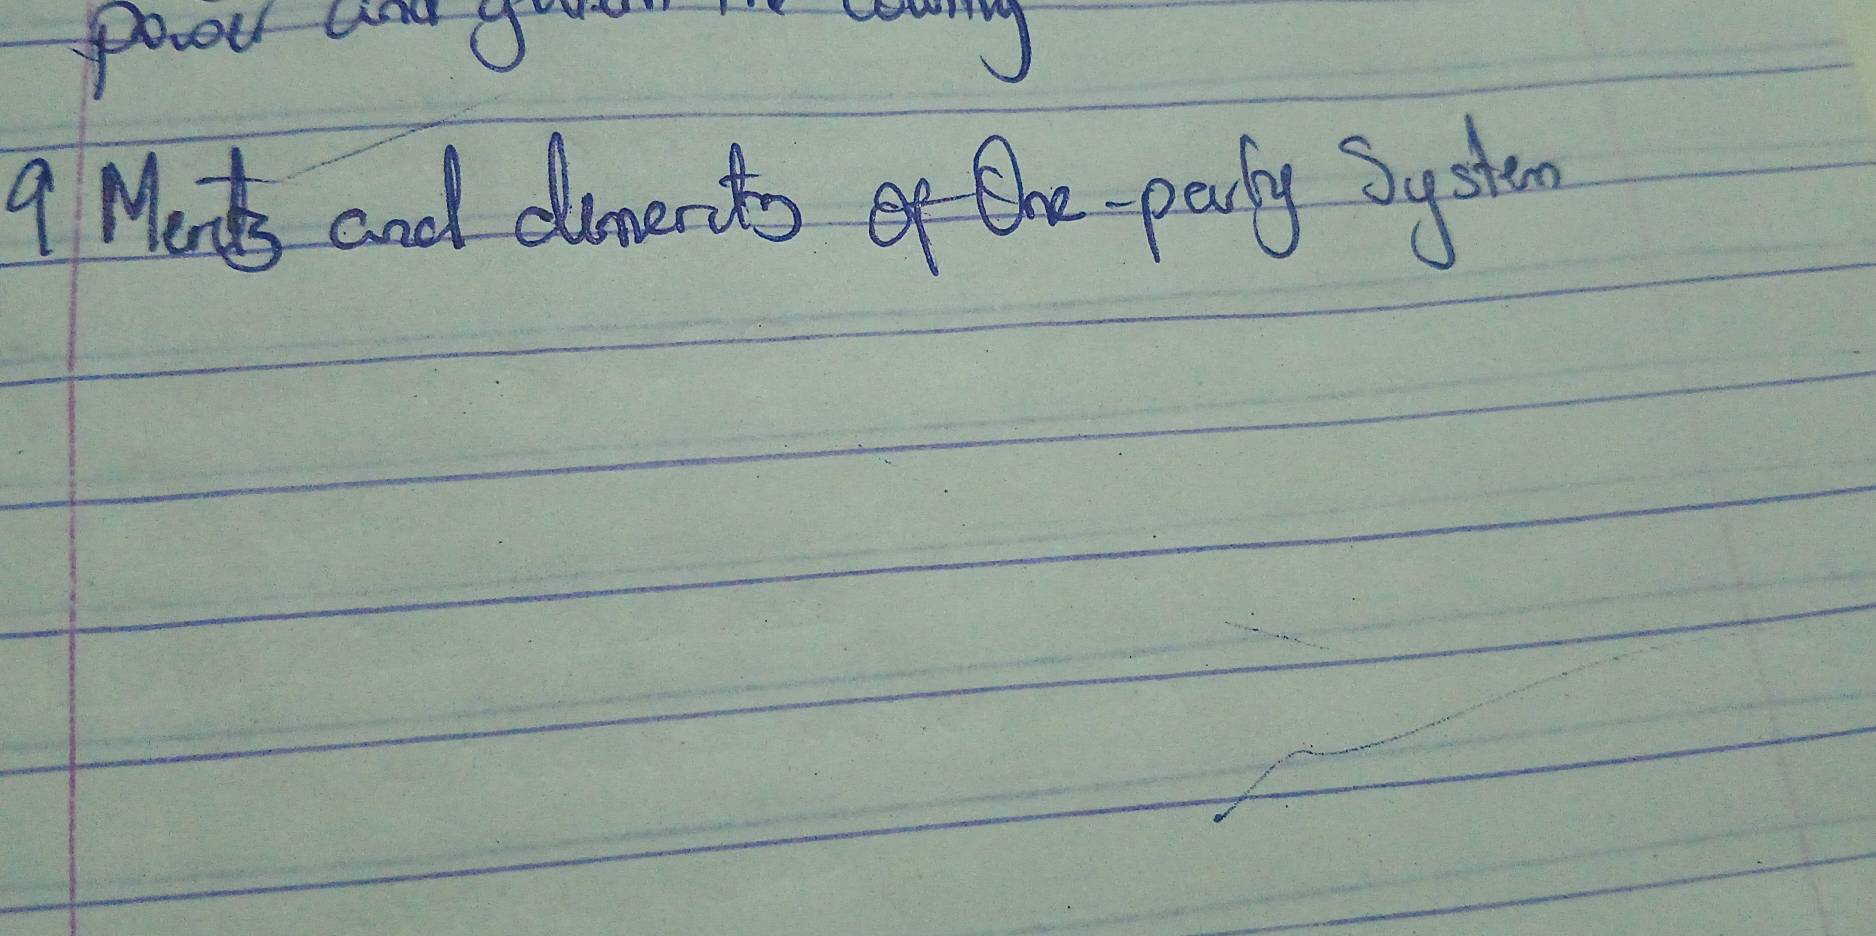 power and govern the country
9 Merits and demerits of One-party System